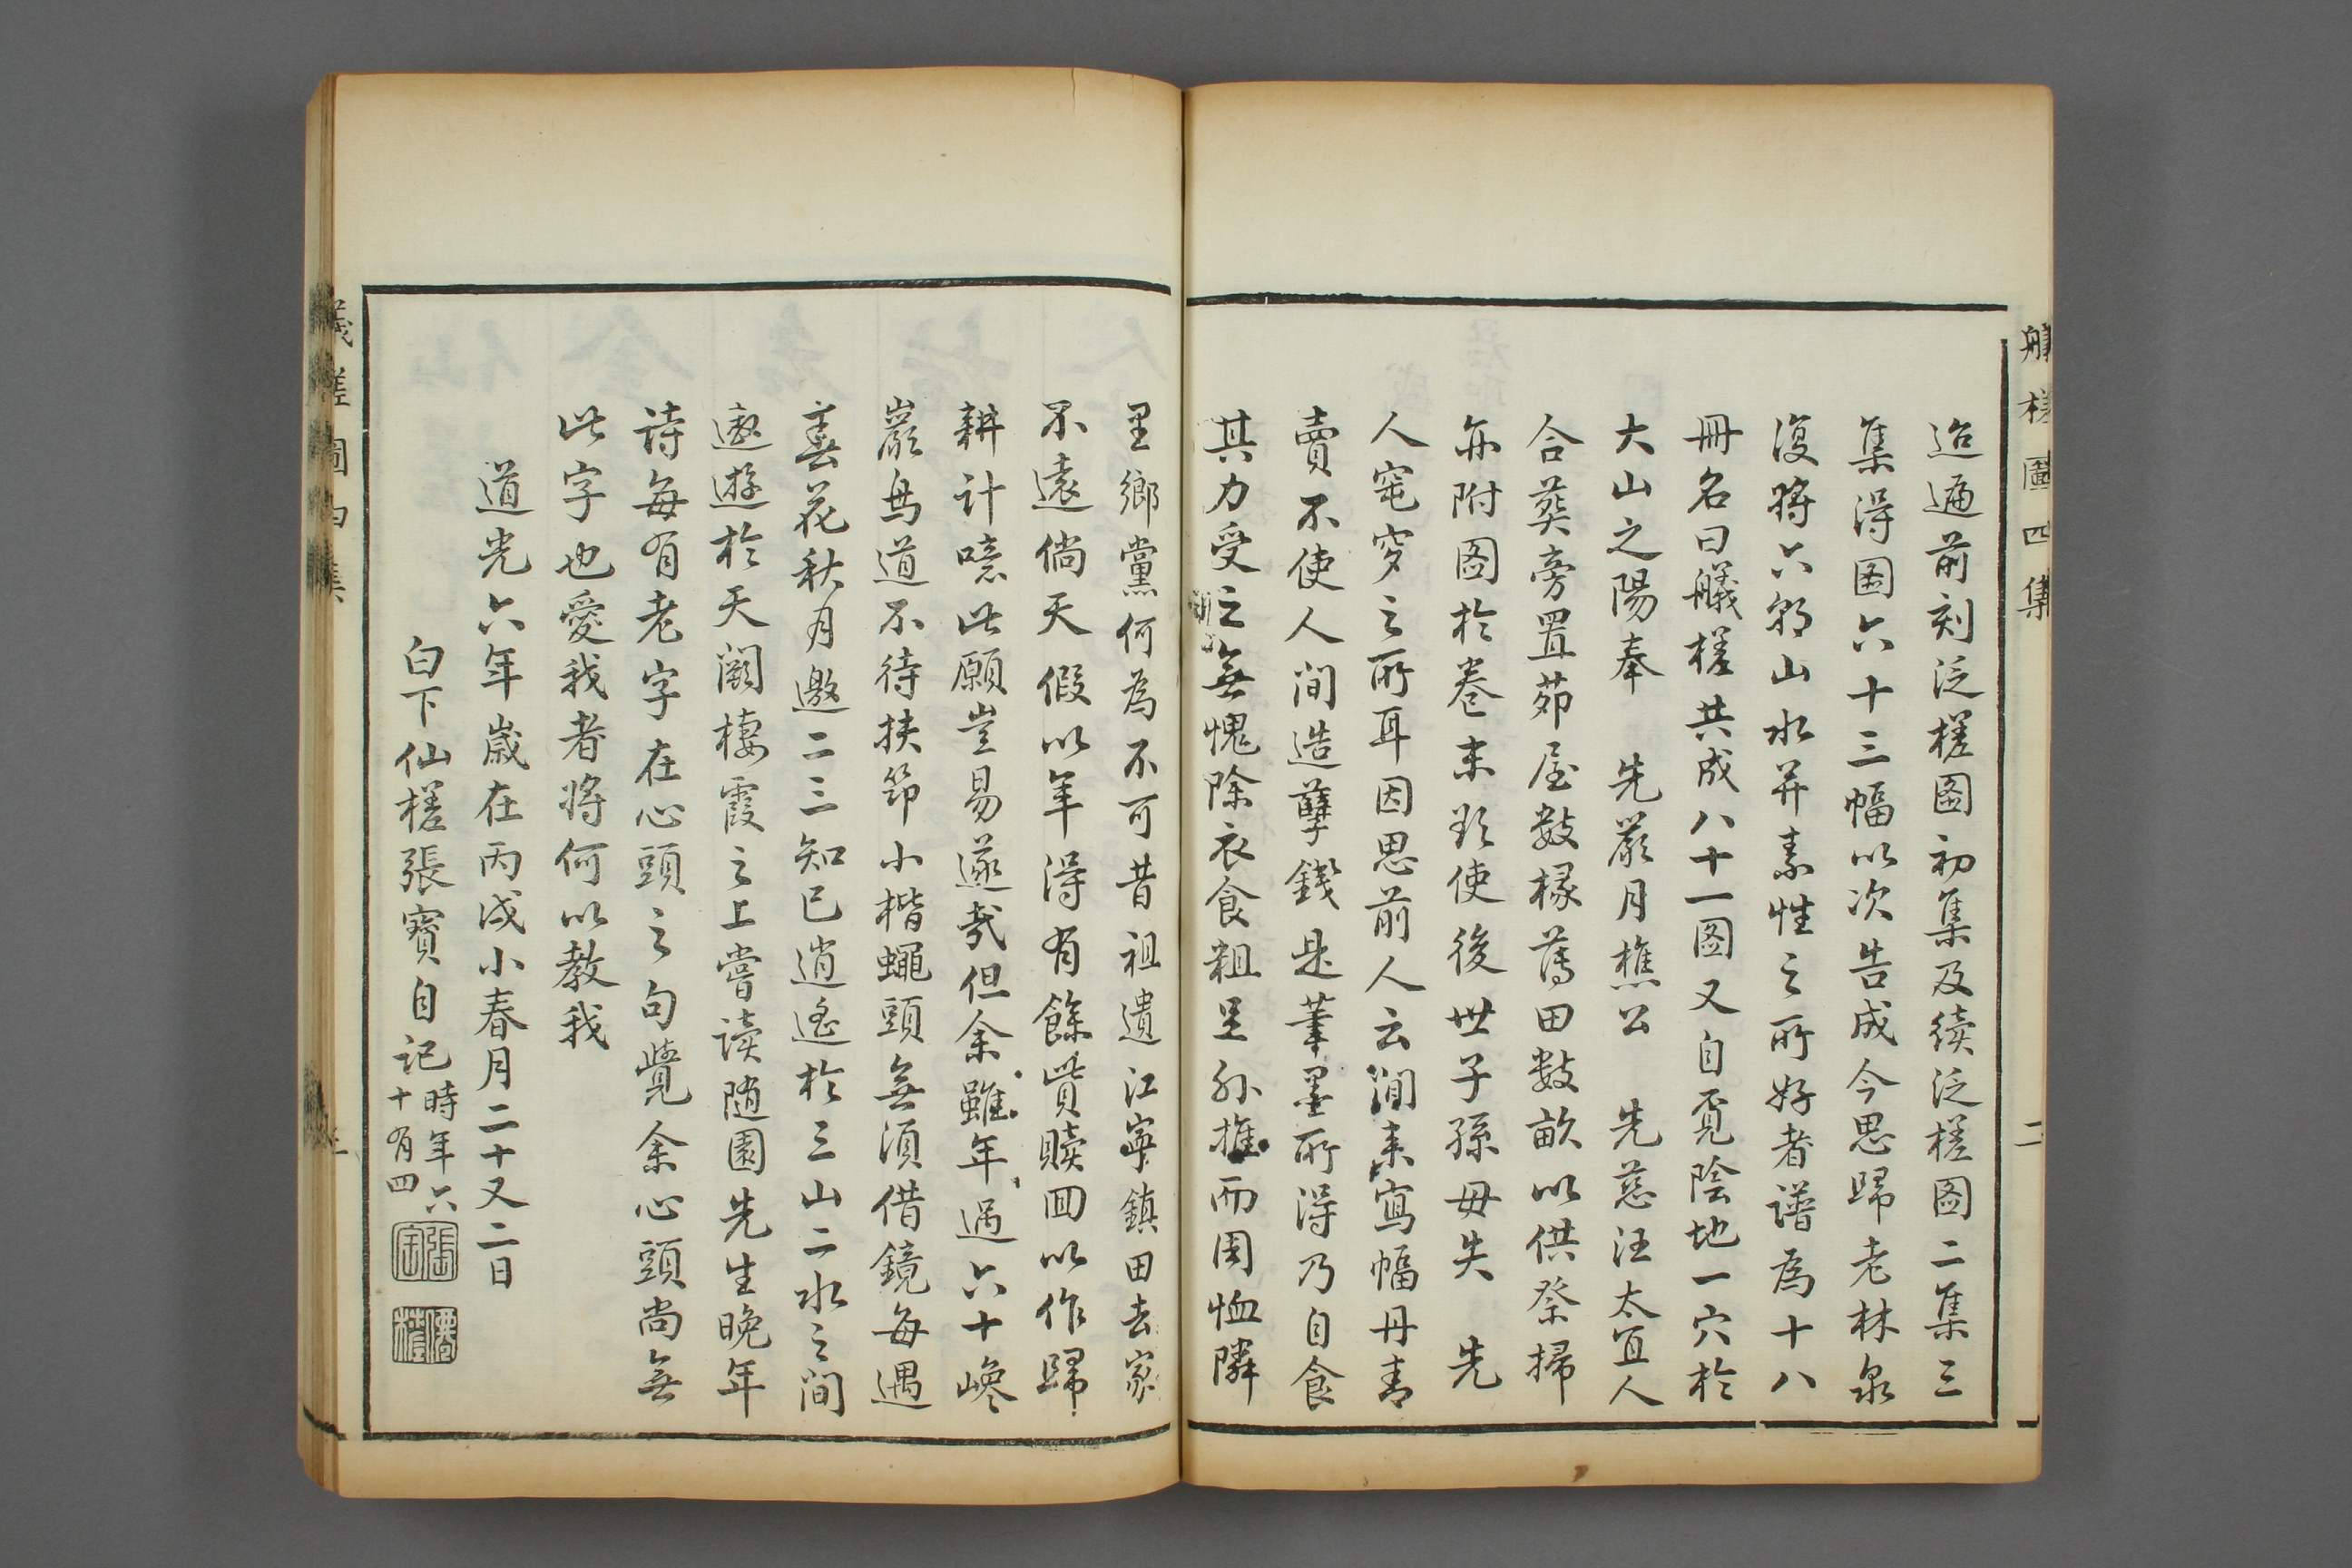 艤槎圖四集
二
迨遍前刻泛槎图初集及续泛槎图二集三
集得图六十三幅以次告成今思歸老林泉
復將六朝山水并素性之所好者譜為十八
冊名曰艤槎共成八十一图又自覓陰地一穴於
大山之陽奉 先嚴月樵公 先慈汪太宜人
合葬旁置茆屋數椽薄田數畝以供祭掃
亦附图於卷末欲使後世子孫毋失 先
人窀穸之所耳因思前人云閒来寫幅丹青
賣不使人間造孽錢是筆墨所得乃自食
其力受之無愧除衣食粗足外推而周恤隣
里鄉黨何為不可昔祖遺江寧鎮田去家
不遠倘天假以年得有餘貲贖回以作歸
耕計噫此願豈易遂哉但余雖年過六十巉
巖鳥道不待扶筇小楷蠅頭無須借鏡每遇
春花秋月邀二三知己逍遙於三山二水之間
遨遊於天闕棲霞之上嘗读随園先生晚年
诗每有老字在心頭之句覺余心頭尚無
此字也愛我者将何以教我
道光六年歲在丙戌小春月二十又二日
白下仙槎張寶自記時年六
十有四
張寶
僊槎
艤槎圖四集